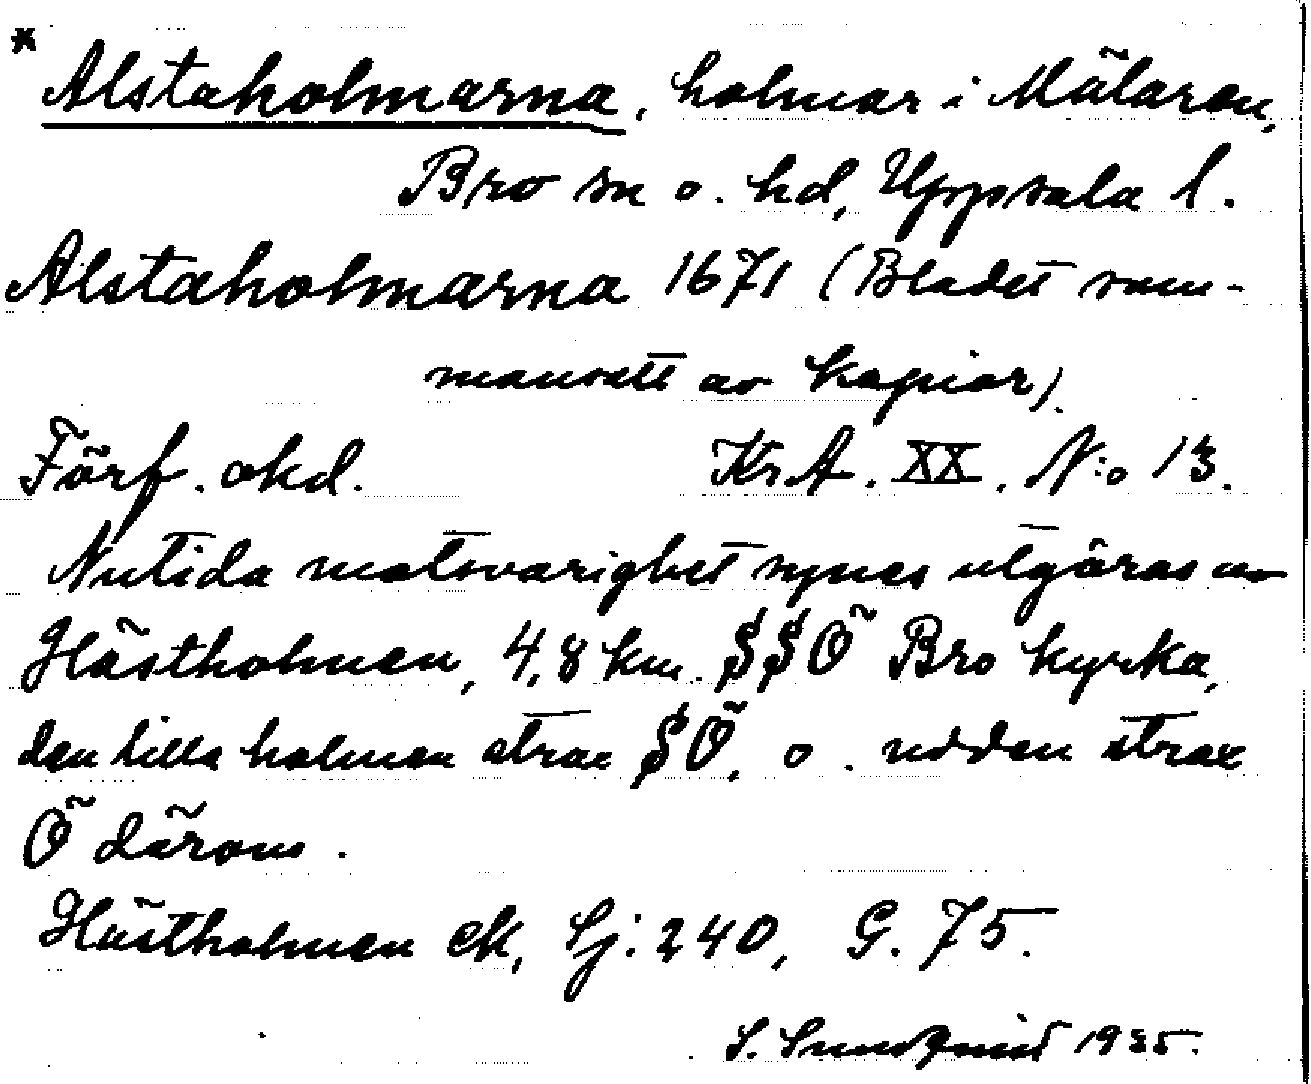 * Alstaholmarna, holmar i Mälaren,
Bro sn o. hd, Uppsala l.
Alstaholmarna 1671 (Bladet sam-
mansatt av kopior).
Förf. okd. Kr.A. XX. N:o 13.
Nutida motsvarighet synes utgöras av
Hästholmen, 4,8 km. SSÖ Bro kyrka,
den lilla holmen strax SÖ, o. udden strax
Ö därom.
Hästholmen ek, Sj: 240, G. 75.
S. Sundqvist 1935.